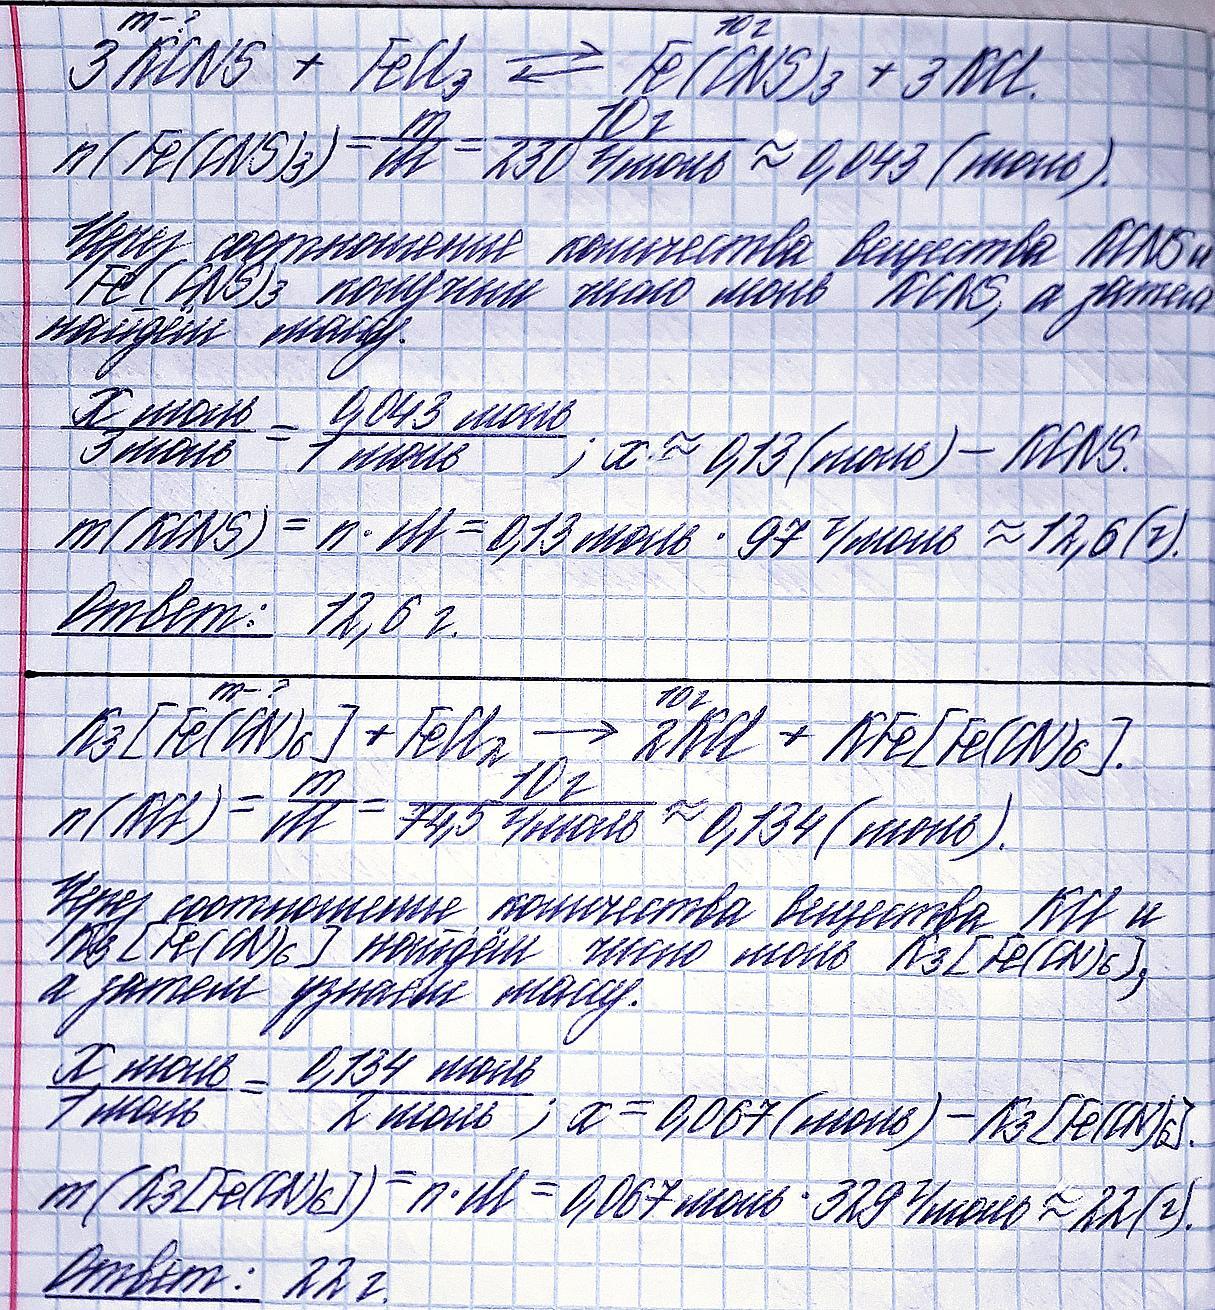 m-?
10 г
3KCNS + FeCl₃ ⇄ Fe(CNS)₃ + 3KCl.
n(Fe(CNS)₃) = m/M = 10 г/230 г/моль ≈ 0,043 (моль).
Через соотношение количества вещества KCNS и
Fe(CNS)₃ получим число моль KCNS, а затем
найдём массу.
x моль/3 моль = 0,043 моль/1 моль ; x ≈ 0,13 (моль) – KCNS.
m(KCNS) = n · M = 0,13 моль · 97 г/моль ≈ 12,6 (г).
Ответ: 12,6 г.
m-?
10 г
K₃[Fe(CN)₆] + FeCl₂ → 2KCl + KFe[Fe(CN)₆].
n(KCl) = m/M = 10 г/74,5 г/моль ≈ 0,134 (моль).
Через соотношение количества вещества KCl и
K₃[Fe(CN)₆] найдём число моль K₃[Fe(CN)₆],
а затем узнаем массу.
x моль/1 моль = 0,134 моль/2 моль ; x = 0,067 (моль) – K₃[Fe(CN)₆].
m(K₃[Fe(CN)₆]) = n · M = 0,067 моль · 329 г/моль ≈ 22 (г).
Ответ: 22 г.